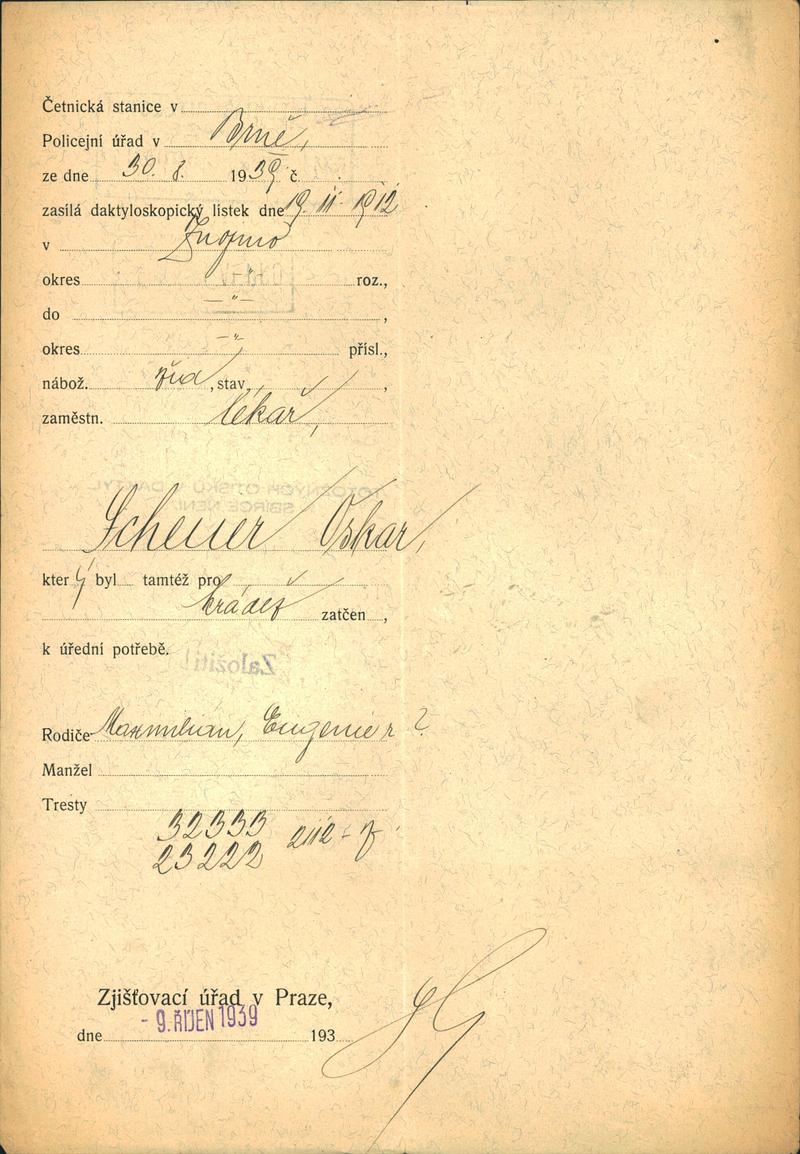 Četnická stanice v
Policejní úřad v Brně,
ze dne 30. 8. 1939 č.
zasílá daktyloskopický lístek dne 19. II. 1912
v Znojmo
okres -"- roz.,
do -"- ,
okres -"- přísl.,
nábož. žid, stav ,
zaměstn. lékař,
Scheuer Oskar,
který byl tamtéž pro
krádež zatčen ,
k úřední potřebě.
Založiti!
Rodiče Maxmilian, Eugenie r ?
Manžel
Tresty
32333
23222
Zjišťovací úřad v Praze,
- 9. ŘÍJEN 1939
dne 193